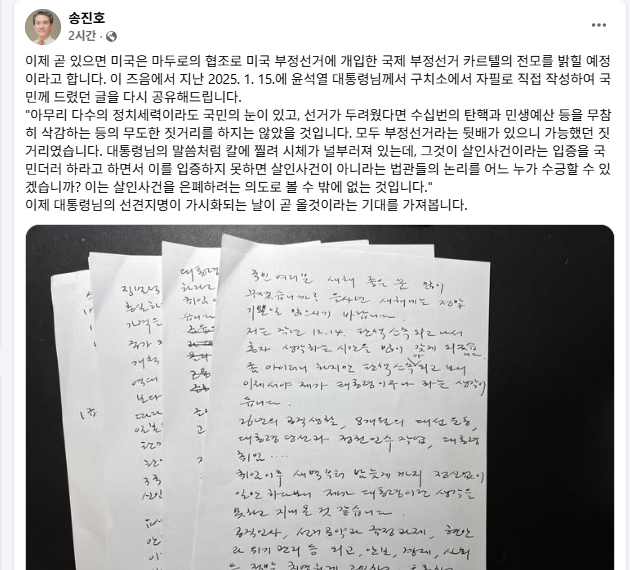 송진호
2시간 ·
이제 곧 있으면 미국은 마두로의 협조로 미국 부정선거에 개입한 국제 부정선거 카르텔의 전모를 밝힐 예정
이라고 합니다. 이 즈음에서 지난 2025. 1. 15.에 윤석열 대통령님께서 구치소에서 자필로 직접 작성하여 국
민께 드렸던 글을 다시 공유해드립니다.
"아무리 다수의 정치세력이라도 국민의 눈이 있고, 선거가 두려웠다면 수십번의 탄핵과 민생예산 등을 무참
히 삭감하는 등의 무도한 짓거리를 하지는 않았을 것입니다. 모두 부정선거라는 뒷배가 있으니 가능했던 짓
거리였습니다. 대통령님의 말씀처럼 칼에 찔려 시체가 널부러져 있는데, 그것이 살인사건이라는 입증을 국
민더러 하라고 하면서 이를 입증하지 못하면 살인사건이 아니라는 법관들의 논리를 어느 누가 수긍할 수 있
겠습니까? 이는 살인사건을 은폐하려는 의도로 볼 수 밖에 없는 것입니다."
이제 대통령님의 선견지명이 가시화되는 날이 곧 올것이라는 기대를 가져봅니다.
국민 여러분 새해 좋은 꿈 많이
꾸셨습니까? 을사년 새해에는 정말
기쁜일 많으시기 바랍니다.
저는 작년 12.14. 탄핵소추되고 나서
혼자 생각하는 시간을 많이 갖게 되었습니다.
좀 아이러니 하지만 탄핵소추되고 보니
이제서야 제가 대통령이구나 하는 생각이
듭니다.
26년의 공직생활, 8개월의 대선 운동,
대통령 당선과 정권 인수 작업, 대통령
취임 ....
취임이후 새벽부터 밤늦게까지 정신없이
일만 하다보니 제가 대통령이란 생각을
못하고 지내온 것 같습니다.
공직인사, 선거공약과 국정과제, 현안
과 위기관리 등 외교, 안보, 경제, 사회